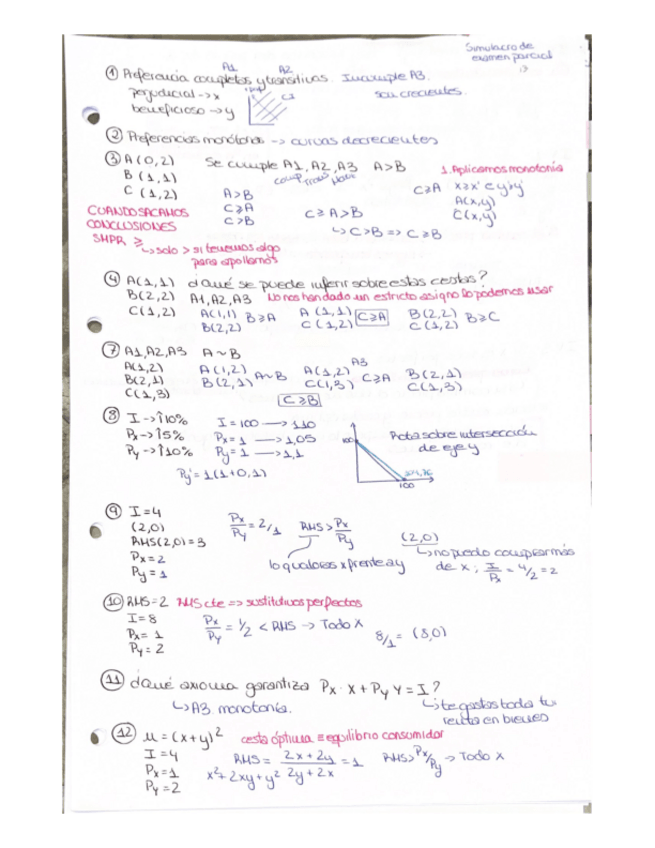 Simulacro de
examen parcial
A1 A2
① Preferencia completas y transitivas. Incumple A3.
perjudicial → x
son crecientes.
beneficioso → y
② Preferencias monótonas → curvas decrecientes
③ A (0,2) Se cumple A1, A2, A3 A>B
B (1,1)
C (1,2)
1. Aplicamos monotonía
C≥A x≥x' e y≥y'
A(x,y)
C(x,y)
A>B
C≥A
C>B
C≥A>B
↳ C>B => C≥B
CUANDO SACAMOS
CONCLUSIONES
SMPR ≥
↳ solo > si tenemos algo
para apollarnos
④ A(1,1) ¿Qué se puede inferir sobre estas cestas?
B(2,2) A1, A2, A3 No nos han dado un estricto asi q no lo podemos usar
C(1,2) A(1,1) B≥A A(1,1) C≥A B(2,2) B≥C
B(2,2) C(1,2) C(1,2)
⑦ A1, A2, A3 A~B
A3
A(1,2) A(1,2) A~B A(1,2) C≥A B(2,1)
B(2,1) B(2,1) C(1,3) C(1,3)
C(1,3) C≥B
⑧ I → ↑10% I = 100 → 110
Px → ↑5% Px = 1 → 1,05
Py → ↑10% Py = 1 → 1,1
Py' = 1(1+0,1)
Rota sobre intersección
de eje y
100
104,76
100
⑨ I = 4
(2,0)
RMS(2,0) = 3
Px = 2
Py = 1
Px/Py = 2/1 RMS > Px/Py
lo q valoras x frente a y
(2,0)
↳ no puedo comprar más
de x; I/Px = 4/2 = 2
⑩ RMS = 2 RMS cte => sustitutivos perfectos
I = 8
Px = 1
Py = 2
Px/Py = 1/2 < RMS → Todo X
8/1 = (8,0)
⑪ ¿Qué axioma garantiza Px · X + Py Y = I?
↳ A3. monotonía.
↳ te gastas toda tu
renta en bienes
⑫ u = (x+y)² cesta óptima = equilibrio consumidor
I = 4
Px = 1
Py = 2
RMS = 2x + 2y / 2y + 2x = 1 RMS > Px/Py → Todo X
x² + 2xy + y²